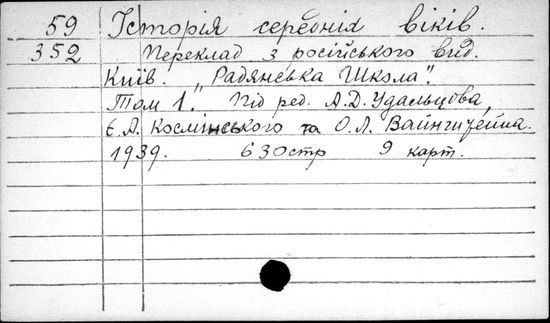 59 Історія середніх віків.
352 Переклад з російського вид.
Київ. "Радянська Школа".
Том 1. Під ред. А.Д. Удальцова,
Є.А. Космінського та О.Л. Вайнштейна.
1939. 630стр 9 карт.